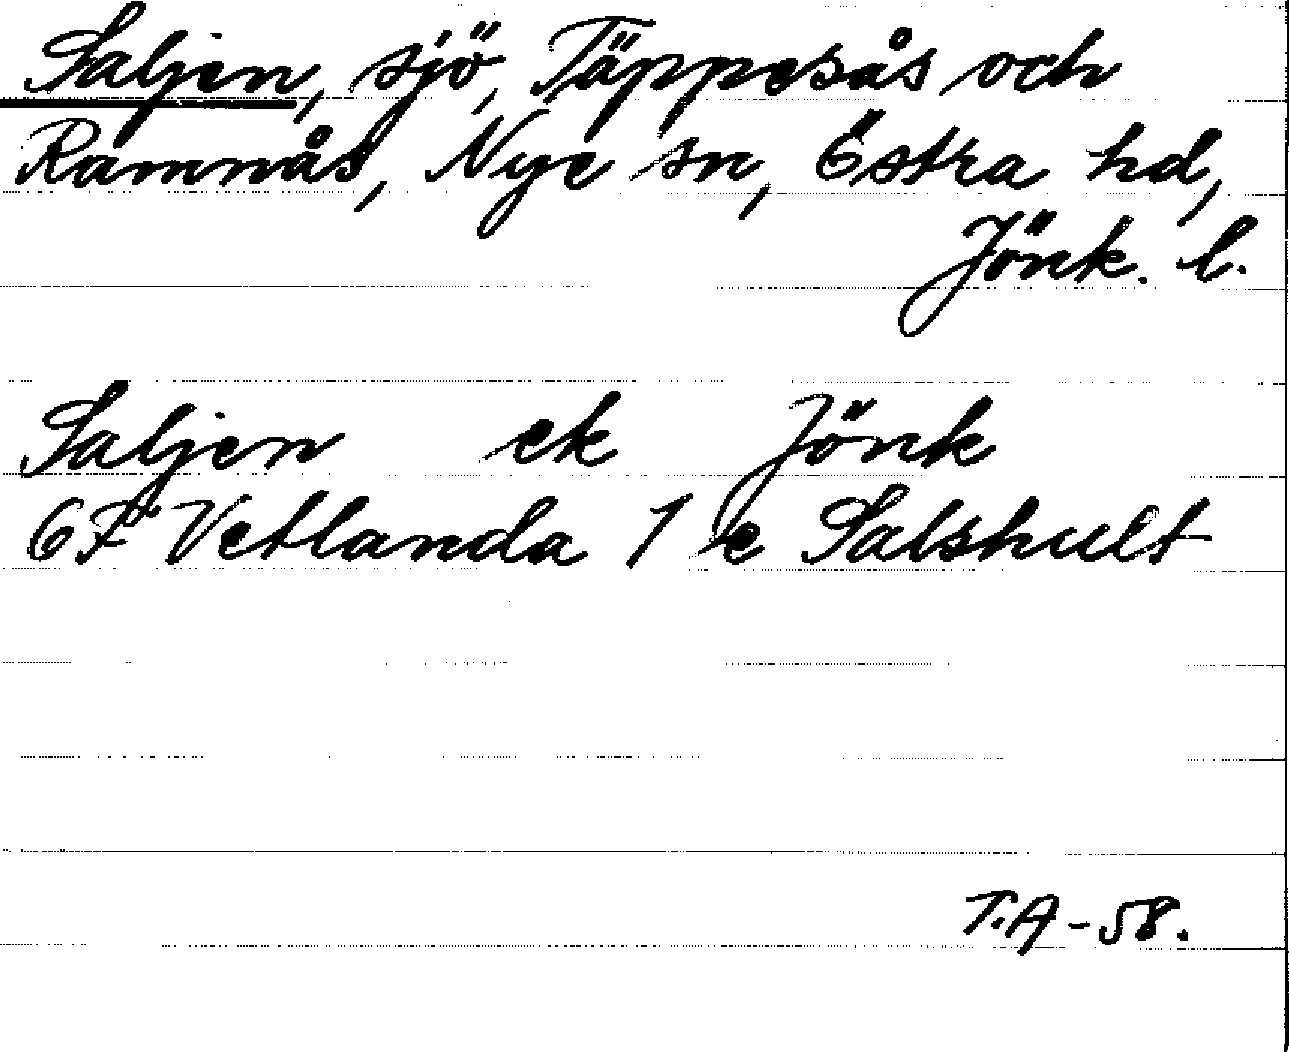 Saljen, sjö, Täppesås och
Ramnås, Nye sn, Östra hd,
Jönk. l.
Saljen ek Jönk
6F Vetlanda 1 le Salshult
T.A - 58.